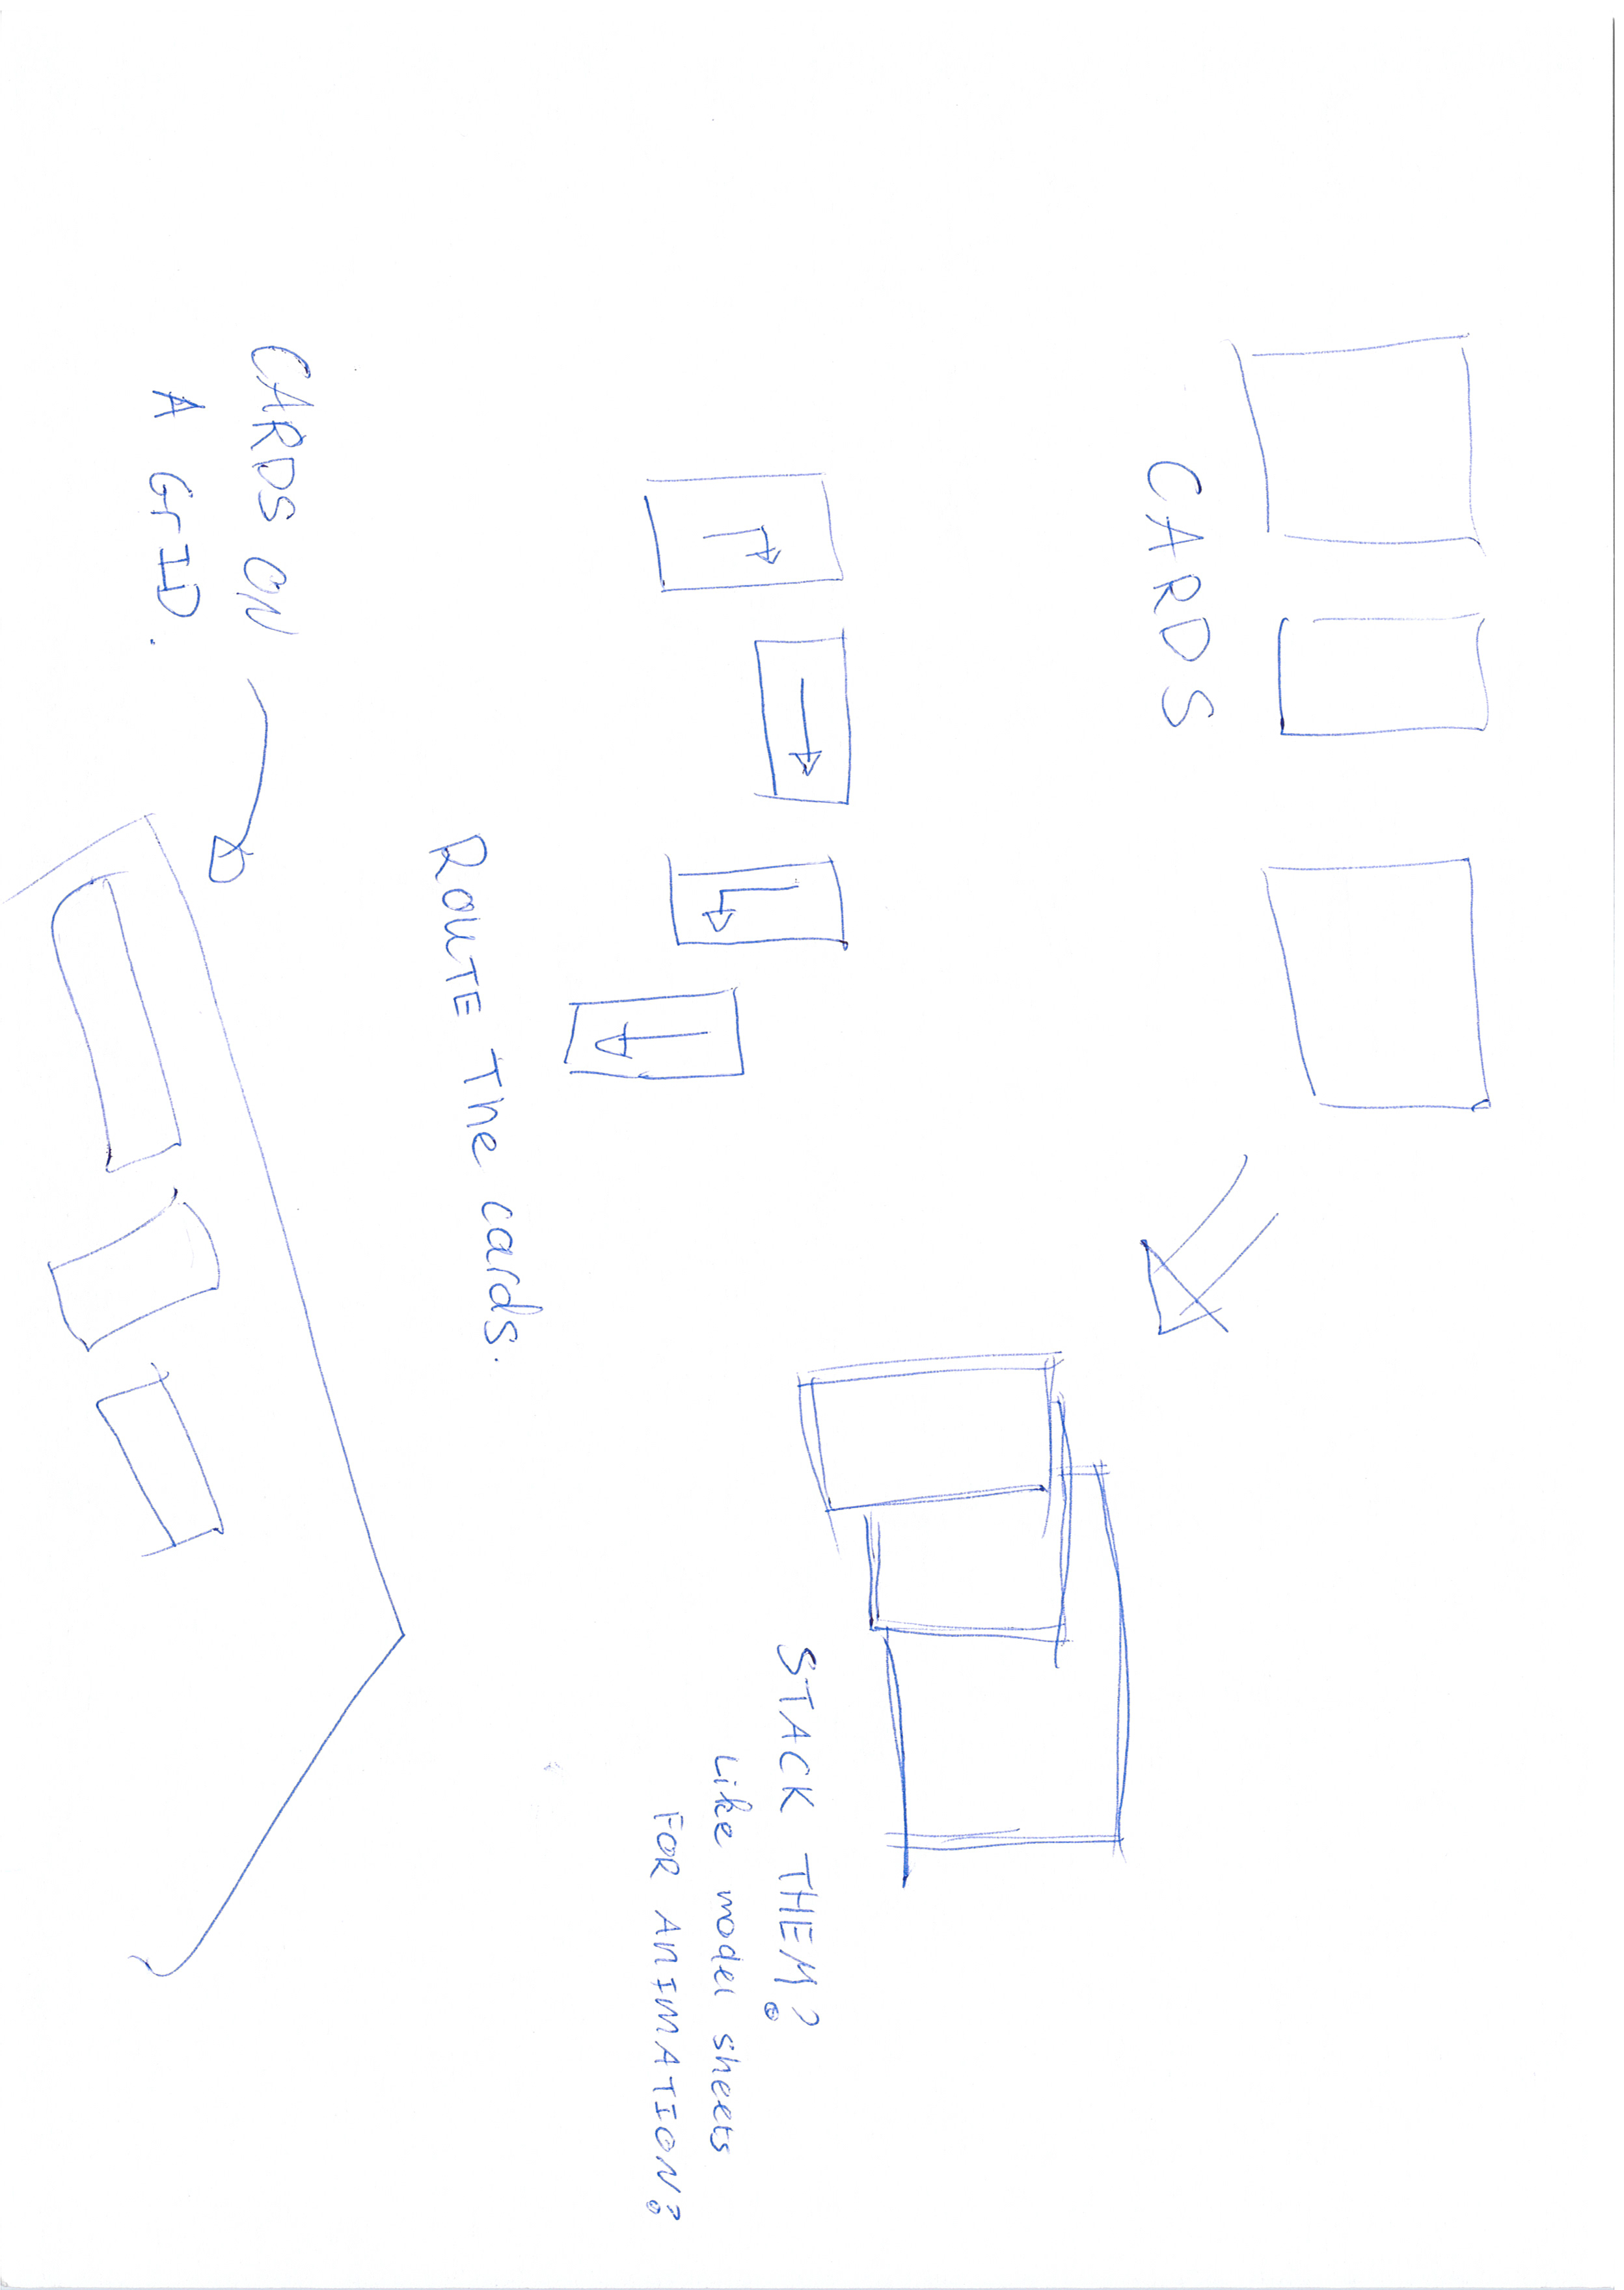 CARDS
STACK THEM?
Like model sheets
FOR ANIMATION?
ROUTE The cards.
CARDS ON
A GrID.